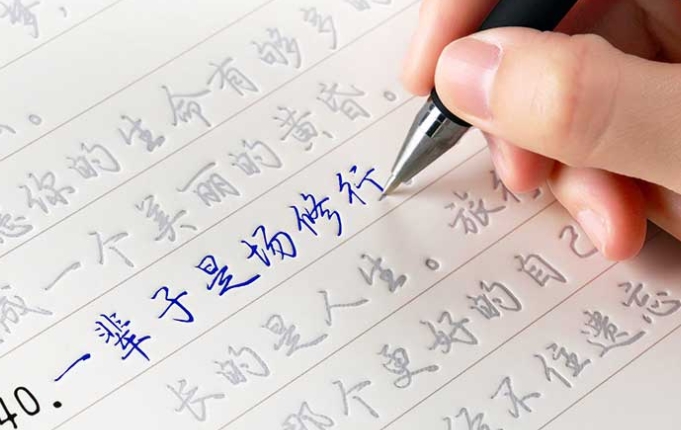 你的生命有够多的
成一个美丽的黄昏。
40. 一辈子是场修行
长的是人生。旅行
那个更好的自己
不住遗忘